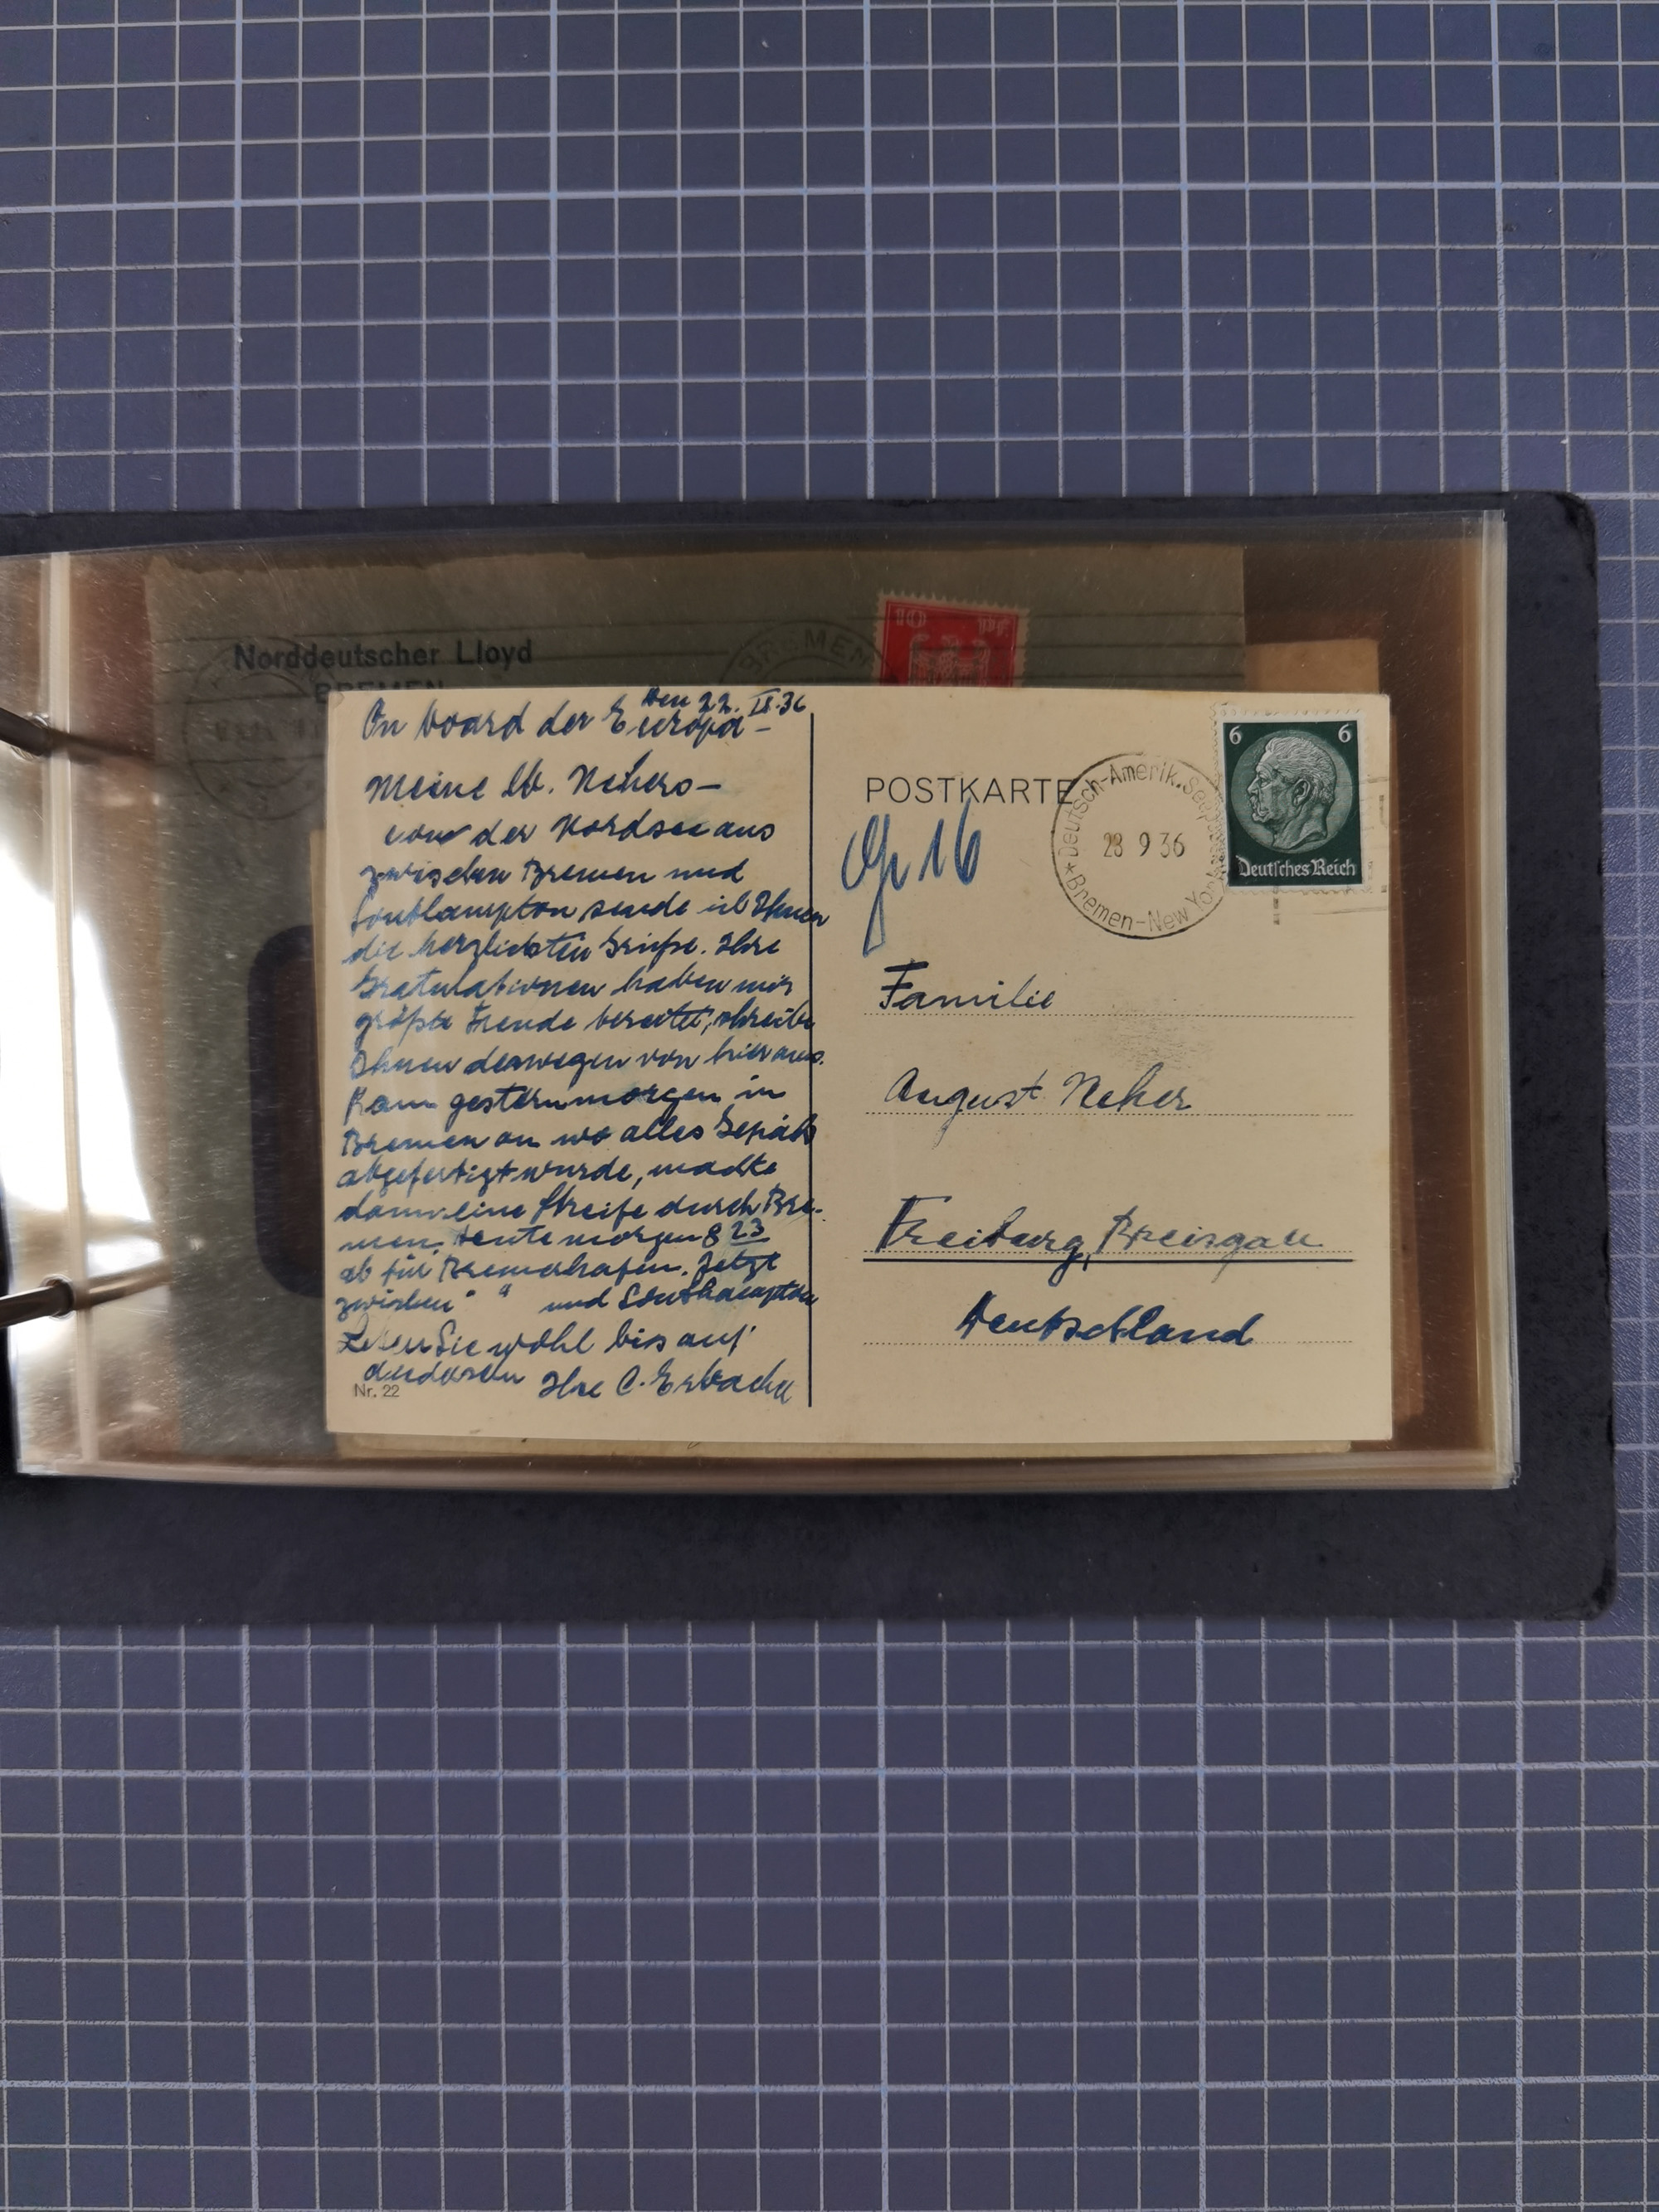 Norddeutscher Lloyd
BREMEN
BREMEN
10 Pf
Den 22. IX. 36
On board der Europa –
Meine lb. Nehers –
von der Nordsee aus
zwischen Bremen und
Southampton sende ich Ihnen
die herzlichsten Grüße. Ihre
Gratulationen haben mir
größte Freude bereitet, schreibe
Ihnen deswegen von hier aus.
Kam gestern morgen in
Bremen an wo alles Gepäck
abgefertigt wurde, machte
dann eine Streife durch Bre-
men. Heute morgen 8 23
ab für Bremerhafen. Jetzt
zwischen " " und Southampton
Leben Sie wohl bis auf
anderen Ihre C. Erbacher
Nr. 22
POSTKARTE
16
Deutsch-Amerik. Seepost
28 9 36
* Bremen-New York
6 6
Deutsches Reich
Familie
August Neher
Freiburg, Breisgau
Deutschland